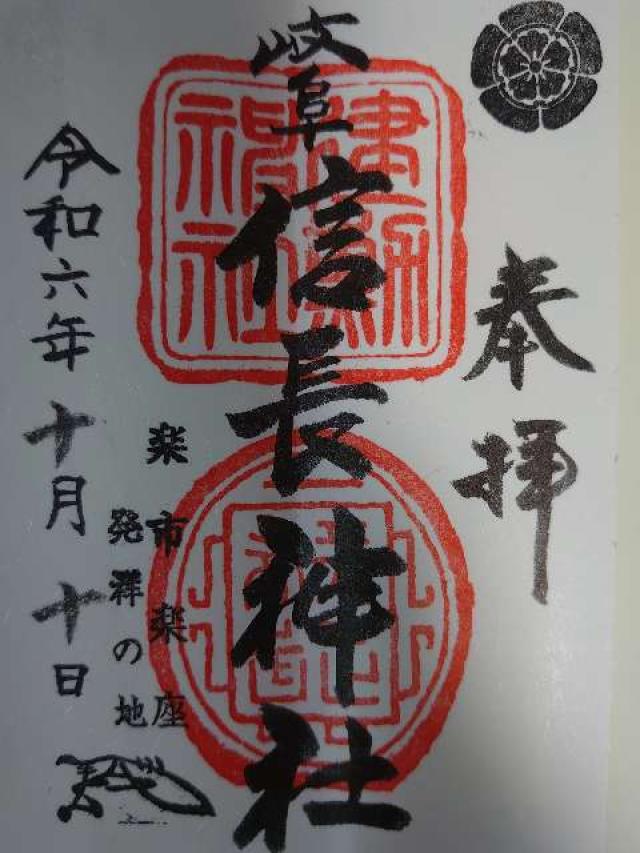 奉拝
岐阜信長神社
建勲神社
楽市楽座
発祥の地
令和六年十月十日